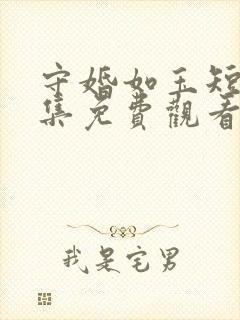 守婚如玉短
集免費觀看
我是宅男